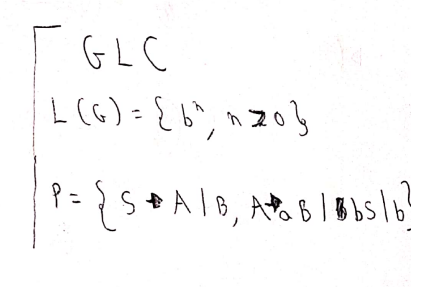 GLC
L(G) = { bⁿ, n ≥ 0 }
P = { S → A | B, A → a B | b S | b }